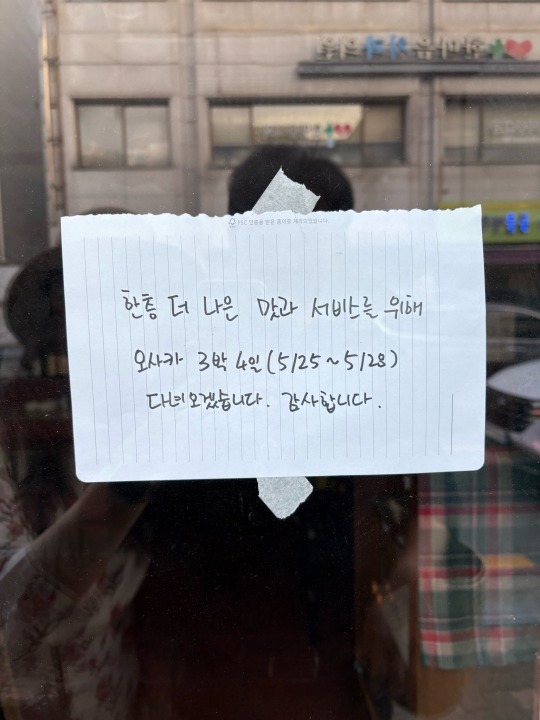 한층 더 나은 맛과 서비스를 위해
오사카 3박 4일(5/25~5/28)
다녀오겠습니다. 감사합니다.